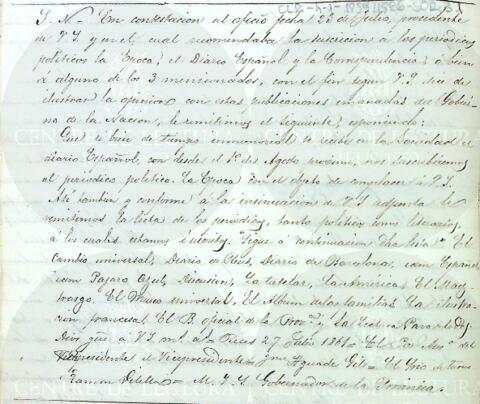 I. N.= En contestacion al oficio fecha 23 de Julio, procedente
de V.I. y en el cual recomendaba la suscricion á los periódicos
politicos la Epoca; el Diario Español y la Correspondencia; ó bien
á alguno de los 3 mencionados, con el fin segun V.I. dice de
ilustrar la opinion con estas publicaciones emanadas del Gobier-
no de la Nacion, le remitimos el siguiente,
Que si bien de tiempo inmemorial se recibe en la Sociedad el
diario Español, con desde el 1º de Agosto proximo, nos suscribiremos
al periódico politico La Epoca con el objeto de complacer á V.I.
Asi tambien y conforme á la insinuacion de V.I. adjunta le
remitimos la lista de los periódicos, tanto politicos como literarios,
á los cuales estamos suscritos. "Sigue á continuacion dha lista" El
Cambio universal, Diario de Reus, Diario de Barcelona, idem Español,
idem Pajaro Azul, Discusion, La tutelar, La América, El Maes-
trazgo. El Museo universal, El Album de las familias La ilustra-
cion francesa, El B. oficial de la Provª y la
Dios gue á V.I. mˢ aˢ Reus 27 Julio 1861= El
Presidente el Vicepresidente= Aguadé Gili= El Srio de turno
Ramon = M. I. S. Gobernador de la Provincia.
CENTRE DE LECTURA